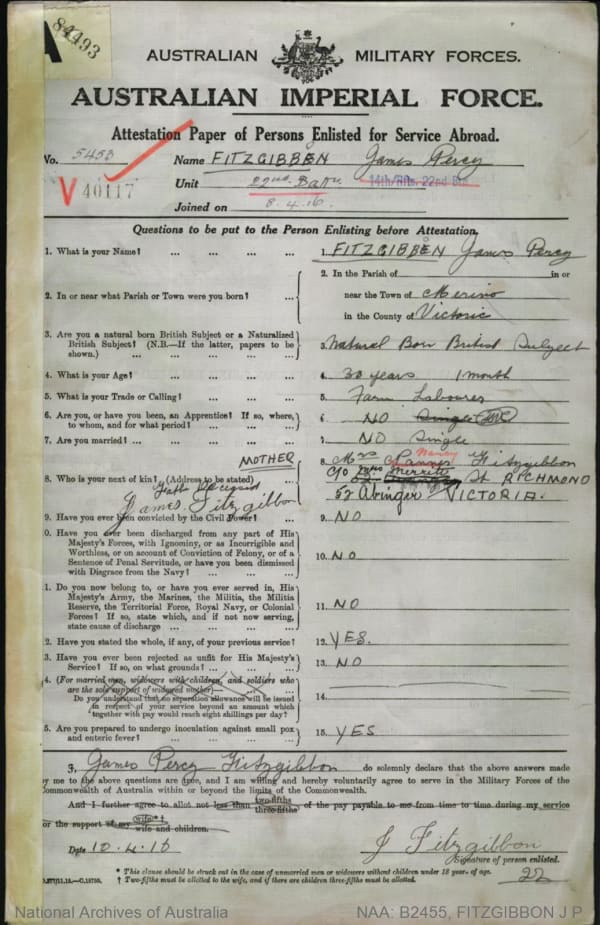 84493
AUSTRALIAN MILITARY FORCES.
AUSTRALIAN IMPERIAL FORCE.
Attestation Paper of Persons Enlisted for Service Abroad.
No. 5453 Name FITZGIBBEN James Percy
V 40117 Unit 22nd Battn. 14th/Rfts. 22nd Btn
Joined on 8.4.16
Questions to be put to the Person Enlisting before Attestation.
1. What is your Name? ... ... ... ... 1. FITZGIBBEN James Percy
2. In or near what Parish or Town were you born? ... 2. In the Parish of in or
near the Town of Merino
in the County of Victoria
3. Are you a natural born British Subject or a Naturalized
British Subject? (N.B.—If the latter, papers to be
shown.) ... ... ... ... 3. Natural Born British Subject
4. What is your Age? ... ... ... ... 4. 30 years 1 month
5. What is your Trade or Calling? ... ... ... 5. Farm Labourer
6. Are you, or have you been, an Apprentice? If so, where,
to whom, and for what period? ... ... ... 6. NO Single
7. Are you married? ... ... ... ... 7. NO Single
MOTHER
8. Who is your next of kin? (Address to be stated) ... 8. Mrs Nancy Fitzgibbon
C/o Mrs Merritt St RICHMOND
52 Abinger VICTORIA.
Father Deceased
James Fitzgibbon
9. Have you ever been convicted by the Civil Power? ... 9. NO
0. Have you ever been discharged from any part of His
Majesty's Forces, with Ignominy, or as Incorrigible and
Worthless, or on account of Conviction of Felony, or of a
Sentence of Penal Servitude, or have you been dismissed
with Disgrace from the Navy? ... ... ... 10. NO
1. Do you now belong to, or have you ever served in, His
Majesty's Army, the Marines, the Militia, the Militia
Reserve, the Territorial Force, Royal Navy, or Colonial
Forces? If so, state which, and if not now serving,
state cause of discharge ... ... ... ... 11. NO
2. Have you stated the whole, if any, of your previous service? 12. YES.
3. Have you ever been rejected as unfit for His Majesty's
Service? If so, on what grounds? ... ... ... 13. NO
4. (For married men, widowers with children, and soldiers who
are the sole support of widowed mother)—
Do you understand that no separation allowance will be issued
in respect of your service beyond an amount which
together with pay would reach eight shillings per day? 14.
5. Are you prepared to undergo inoculation against small pox
and enteric fever? ... ... ... ... 15. YES
I, James Percy Fitzgibbon do solemnly declare that the above answers made
y me to the above questions are true, and I am willing and hereby voluntarily agree to serve in the Military Forces of the
Commonwealth of Australia within or beyond the limits of the Commonwealth.
And I further agree to allot not less than two-fifths three-fifths of the pay payable to me from time to time during my service
or the support of my wife*† wife and children.
Date 10.4.16 J Fitzgibbon
Signature of person enlisted.
22
* This clause should be struck out in the case of unmarried men or widowers without children under 18 years of age.
† Two-fifths must be allotted to the wife, and if there are children three-fifths must be allotted.
National Archives of Australia NAA: B2455, FITZGIBBON J P